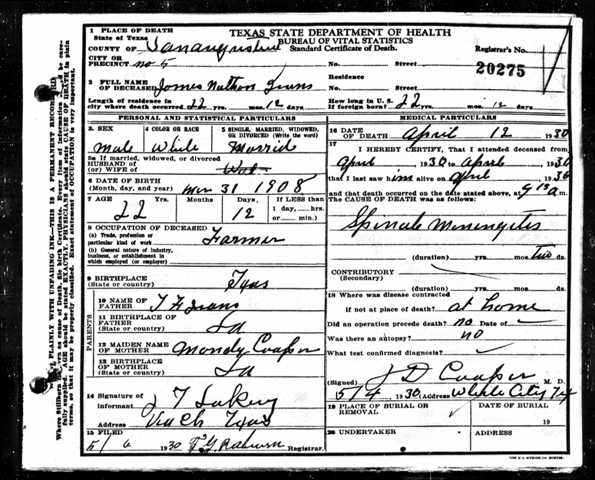 1 PLACE OF DEATH
State of Texas
TEXAS STATE DEPARTMENT OF HEALTH
BUREAU OF VITAL STATISTICS
Standard Certificate of Death.
COUNTY OF San Augustine
Registrar's No.
CITY OR
PRECINCT no 5 No. Street
20275
2 FULL NAME
OF DECEASED James Nathan
Residence
No. Street
Length of residence in
city where death occurred. 22 yrs. mos. 12 ds.
How long in U. S.
if foreign born? 22 yrs. mos. 12 ds.
PERSONAL AND STATISTICAL PARTICULARS
3. SEX
Male
4 COLOR OR RACE
White
5 SINGLE, MARRIED, WIDOWED,
OR DIVORCED (Write the word)
Married
5a If married, widowed, or divorced
HUSBAND OF
(or) WIFE OF
6 DATE OF BIRTH
(Month, day, and year) Mar 31 1908
7 AGE Years Months Days If LESS than
1 day, hrs.
or min.
22 12
8 OCCUPATION OF DECEASED
(a) Trade, profession or
particular kind of work Farmer
(b) General nature of industry,
business, or establishment in
which employed (or employer)
9 BIRTHPLACE
(State or country) Texas
PARENTS
10 NAME OF
FATHER
11 BIRTHPLACE OF
FATHER
(State or country) La
12 MAIDEN NAME
OF MOTHER Cooper
13 BIRTHPLACE
OF MOTHER
(State or country) La
14 Signature of
Informant
Address Texas
15 FILED
5/6 1930 Registrar.
MEDICAL PARTICULARS
16 DATE
OF DEATH April 12 1930
17
I HEREBY CERTIFY, That I attended deceased from
April 1930 to April 1930
that I last saw him alive on April 1930
and that death occurred on the date stated above, at 9 15 a m.
The CAUSE OF DEATH was as follows:
Spinal Meningitis
(duration) yrs. mos. Two ds.
CONTRIBUTORY
(Secondary)
(duration) yrs. mos. ds.
18 Where was disease contracted
if not at place of death? at home
Did an operation precede death? no Date of
Was there an autopsy? no
What test confirmed diagnosis?
(Signed) J D Cooper M. D.
5/4 1930 White City Tx
19 PLACE OF BURIAL OR
REMOVAL
DATE OF BURIAL
19
20 UNDERTAKER
ADDRESS